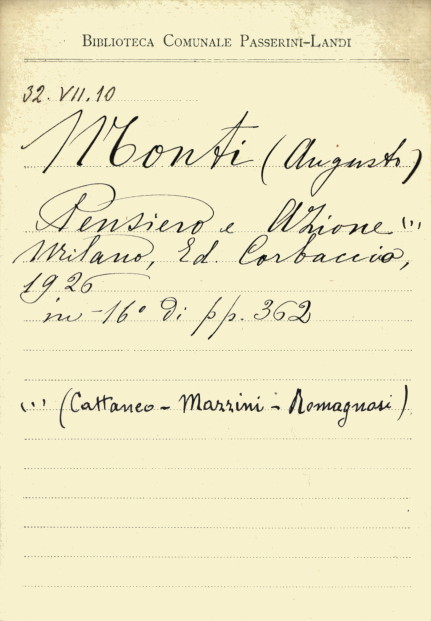 BIBLIOTECA COMUNALE PASSERINI-LANDI
32.VII.10
Monti (Augusto)
Pensiero e Azione (...)
Milano, Ed. Corbaccio,
1926
in-16° di pp. 362
(...) (Cattaneo - Mazzini - Romagnosi)